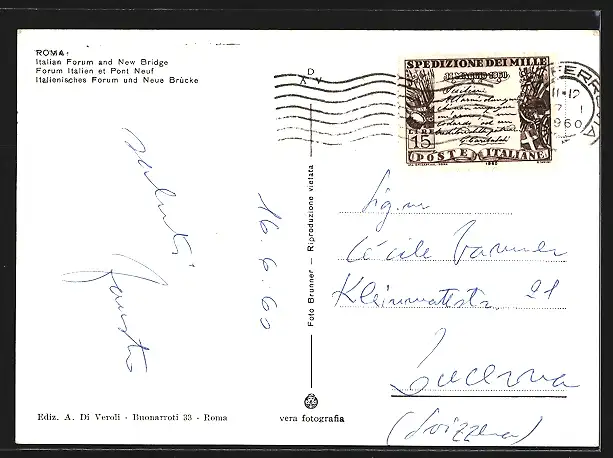 ROMA:
Italian Forum and New Bridge
Forum Italien et Pont Neuf
Italienisches Forum und Neue Brücke
Saluti
Fausto
16.6.60
D
A V
SPEDIZIONE DEI MILLE
5 MAGGIO 1860
G. Garibaldi
LIRE
15
POSTE ITALIANE
1960
11-12
1960
Foto Brunner - Riproduzione vietata
Sig.na
Cécile
Kleinmattstr. 21
Lucerna
(Svizzera)
Ediz. A. Di Veroli - Buonarroti 33 - Roma
vera fotografia